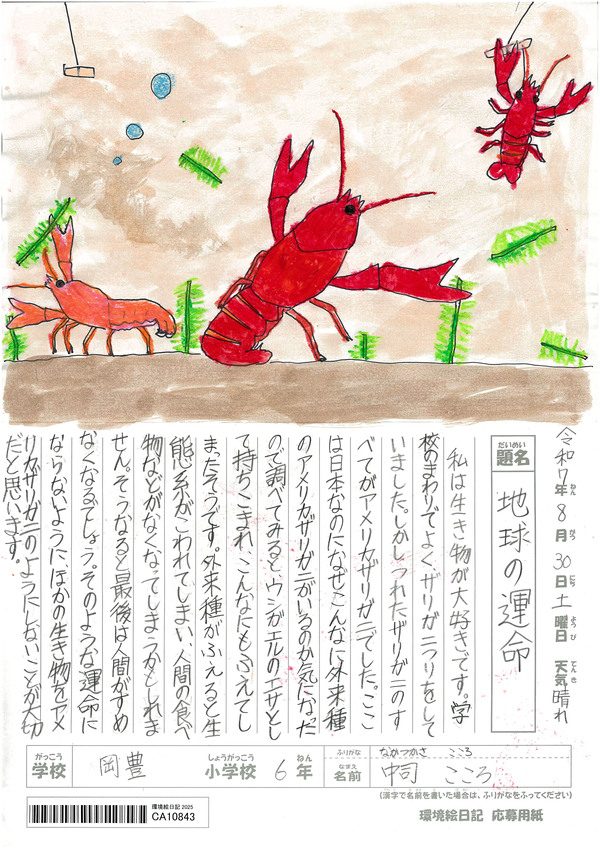 令和7年8月30日土曜日 天気晴れ
ねん がつ にち ようび てんき
だいめい
題名
地球の運命
私は生き物が大好きです。学
校のまわりでよく、ザリガニつりをして
いました。しかしつれたザリガニのす
べてがアメリカザリガニでした。ここ
は日本なのになぜこんなに外来種
のアメリカザリガニがいるのか気になった
ので調べてみると、ウシガエルのエサとし
て持ちこまれ、こんなにもふえてし
まったそうです。外来種がふえると生
態系がこわれてしまい、人間の食べ
物などがなくなってしまうかもしれま
せん。そうなると最後は人間がすめ
なくなるでしょう。そのような運命に
ならないように、ほかの生き物をアメ
リカザリガニのようにしないことが大切
だと思います。
がっこう しょうがっこう ねん
学校 岡豊 小学校 6年
ふりがな なかつかさ こころ
なまえ
名前 中司 こころ
(漢字で名前を書いた場合は、ふりがなをふってください)
環境絵日記 2025
CA10843
環境絵日記 応募用紙